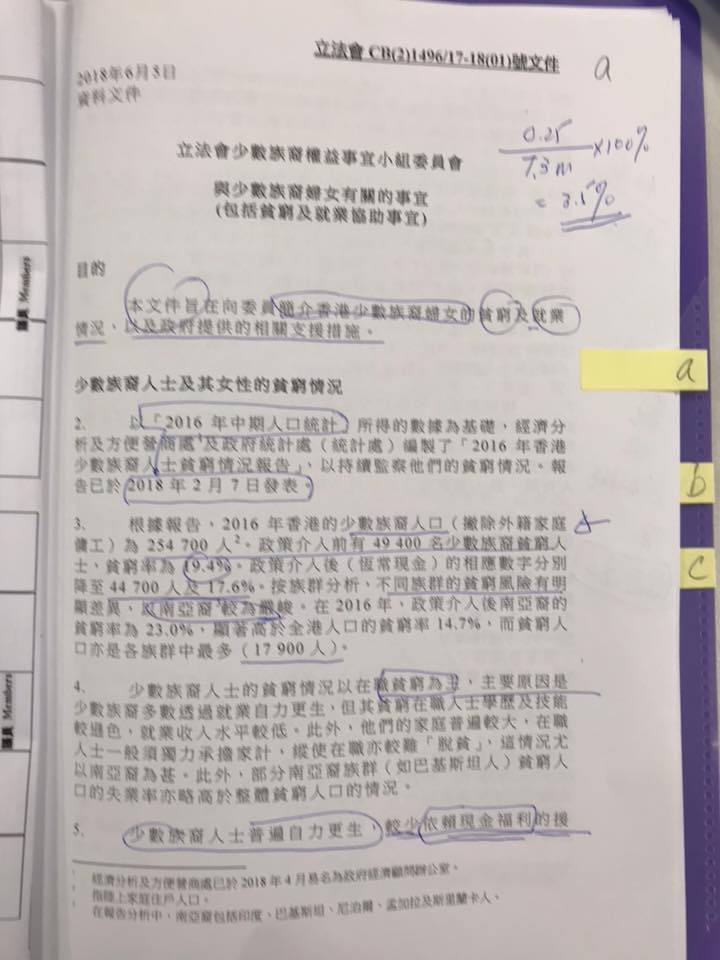 立法會 CB(2)1496/17-18(01)號文件
a
2018年6月5日
資料文件
立法會少數族裔權益事宜小組委員會
與少數族裔婦女有關的事宜
(包括貧窮及就業協助事宜)
0.25
7.3m
×100%
= 3.5%
目的
本文件旨在向委員簡介香港少數族裔婦女的貧窮及就業
情況、以及政府提供的相關支援措施。
少數族裔人士及其女性的貧窮情況
2. 以「2016 年中期人口統計」所得的數據為基礎，經濟分
析及方便營商處1及政府統計處（統計處）編製了「2016 年香港
少數族裔人士貧窮情況報告」，以持續監察他們的貧窮情況。報
告已於 2018 年 2 月 7 日發表。
3. 根據報告，2016 年香港的少數族裔人口（撇除外籍家庭
傭工）為 254 700 人2。政策介入前有 49 400 名少數族裔貧窮人
士，貧窮率為 19.4%。政策介入後（恆常現金）的相應數字分別
降至 44 700 人及 17.6%。按族群分析，不同族群的貧窮風險有明
顯差異，以南亞裔3較為嚴峻。在 2016 年，政策介入後南亞裔的
貧窮率為 23.0%，顯著高於全港人口的貧窮率 14.7%，而貧窮人
口亦是各族群中最多（17 900 人）。
4. 少數族裔人士的貧窮情況以在職貧窮為主，主要原因是
少數族裔多數透過就業自力更生，但其貧窮在職人士學歷及技能
較遜色，就業收入水平較低。此外，他們的家庭普遍較大，在職
人士一般須獨力承擔家計，縱使在職亦較難「脫貧」，這情況尤
以南亞裔為甚。此外，部分南亞裔族群（如巴基斯坦人）貧窮人
口的失業率亦略高於整體貧窮人口的情況。
5. 少數族裔人士普遍自力更生，較少依賴現金福利的援
經濟分析及方便營商處已於 2018 年 4 月易名為政府經濟顧問辦公室。
指陸上家庭住戶人口。
在報告分析中，南亞裔包括印度、巴基斯坦、尼泊爾、孟加拉及斯里蘭卡人。
a
b
c
議員 Members
議員 Members